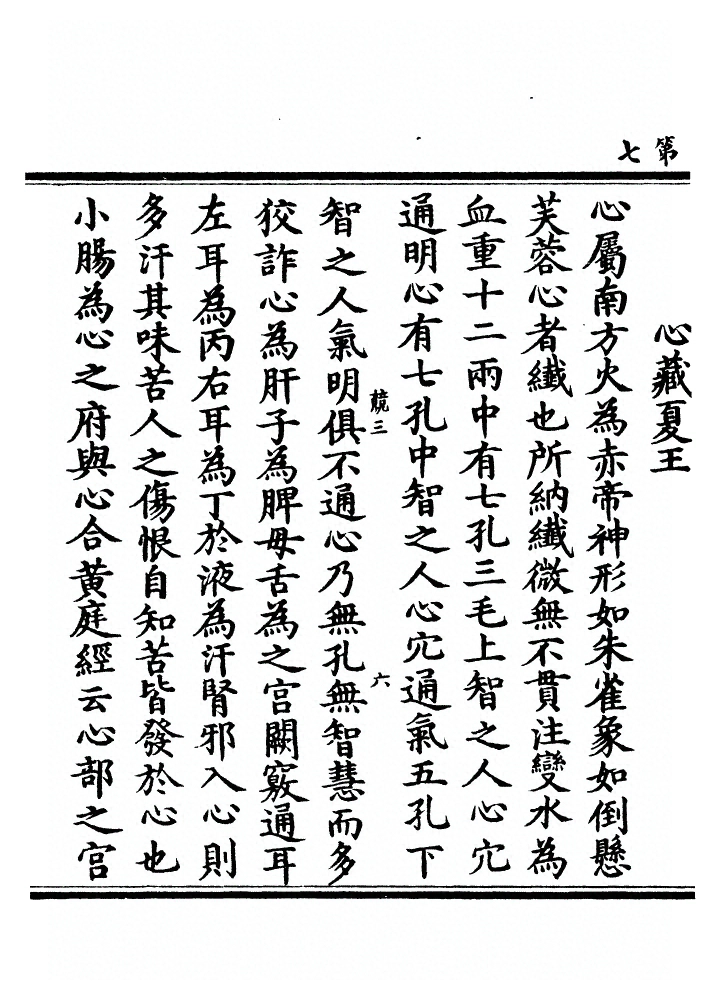 第七
心藏夏王
心屬南方火為赤帝神形如朱雀象如倒懸
芙蓉心者纖也所納纖微無不貫注變水為
血重十二兩中有七孔三毛上智之人心穴
通明心有七孔中智之人心穴通氣五孔下
競三 六
智之人氣明俱不通心乃無孔無智慧而多
狡詐心為肝子為脾母舌為之宮闕竅通耳
左耳為丙右耳為丁於液為汗腎邪入心則
多汗其味苦人之傷恨自知苦皆發於心也
小腸為心之府與心合黃庭經云心部之宮